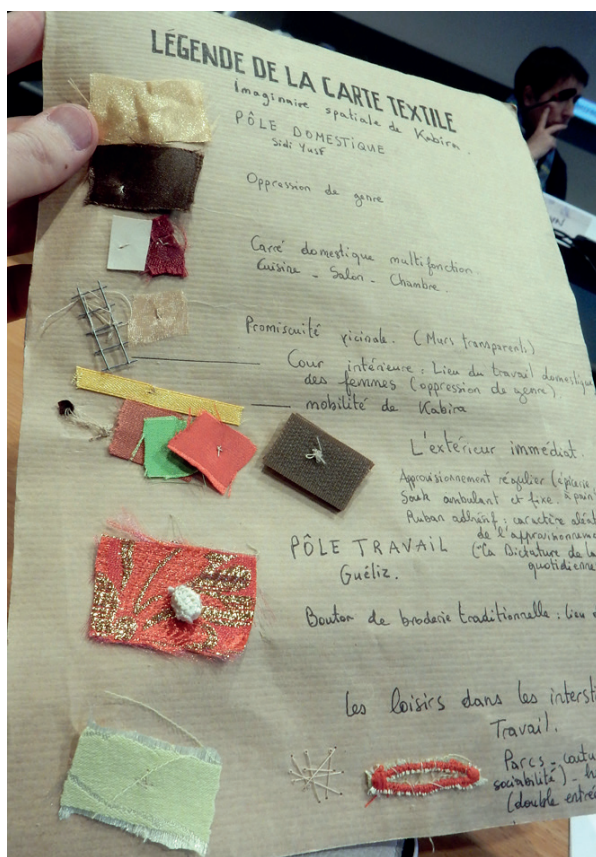 LÉGENDE DE LA CARTE TEXTILE
Imaginaire spatiale de Kabira.
PÔLE DOMESTIQUE
Sidi Yusf
Oppression de genre
Carré domestique multifonction.
Cuisine - Salon - Chambre
Promiscuité vicinale. (Murs transparents)
Cour intérieure : Lieu du travail domestique
des femmes (oppression de genre).
mobilité de Kabira
L'extérieur immédiat.
Approvisionnement régulier (épicerie,
Souk ambulant et fixe.
Ruban adhésif : caractère
de l'approvisionnement
("La Dictature de
quotidienne
PÔLE TRAVAIL
Guéliz.
Bouton de broderie traditionnelle : lieu
Les loisirs dans les
Travail.
Parcs -
sociabilité) -
(double